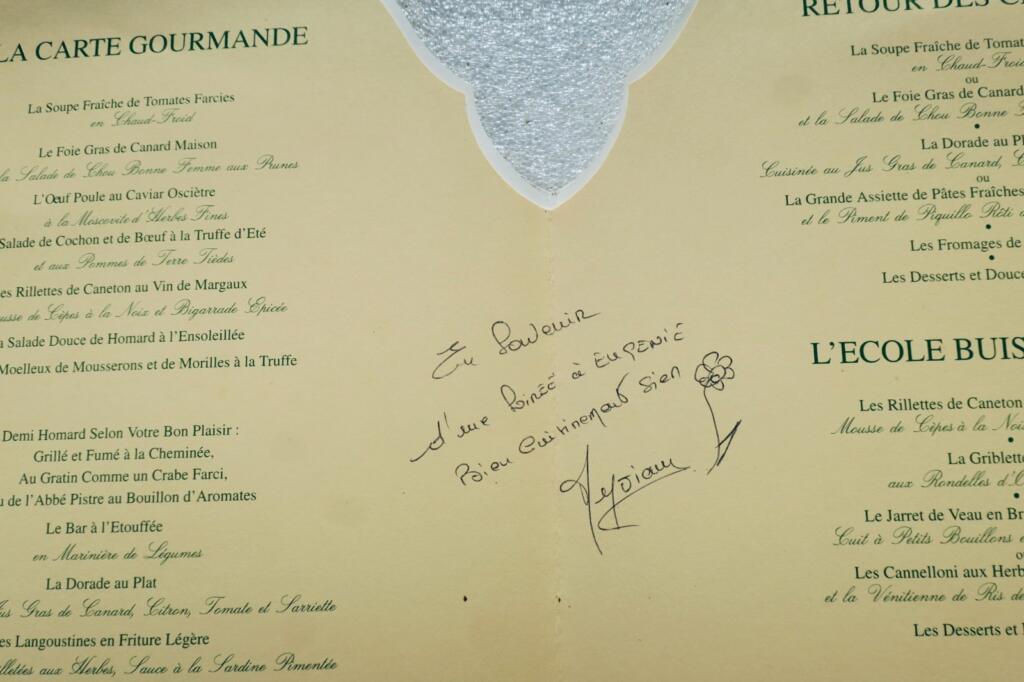 LA CARTE GOURMANDE
La Soupe Fraîche de Tomates Farcies
en Chaud-Froid
Le Foie Gras de Canard Maison
la Salade de Chou Bonne Femme aux Prunes
L'Œuf Poule au Caviar Osciètre
à la Moscovite d'Herbes Fines
Salade de Cochon et de Bœuf à la Truffe d'Eté
et aux Pommes de Terre Tièdes
es Rillettes de Caneton au Vin de Margaux
usse de Cèpes à la Noix et Bigarrade Epicée
a Salade Douce de Homard à l'Ensoleillée
Moelleux de Mousserons et de Morilles à la Truffe
Demi Homard Selon Votre Bon Plaisir :
Grillé et Fumé à la Cheminée,
Au Gratin Comme un Crabe Farci,
u de l'Abbé Pistre au Bouillon d'Aromates
Le Bar à l'Etouffée
en Marinière de Légumes
La Dorade au Plat
Jus Gras de Canard, Citron, Tomate et Sarriette
es Langoustines en Friture Légère
illetées aux Herbes, Sauce à la Sardine Pimentée
En Souvenir
d'une Soirée à EUGENIE
Bien Cuisinement Sien
RETOUR DES C
La Soupe Fraîche de Tomat
en Chaud-Froid
ou
Le Foie Gras de Canard
et la Salade de Chou Bonne
La Dorade au Pl
Cuisinée au Jus Gras de Canard, C
ou
La Grande Assiette de Pâtes Fraîches
et le Piment de Piquillo Rôti
Les Fromages de
Les Desserts et Douce
L'ECOLE BUIS
Les Rillettes de Caneton
Mousse de Cèpes à la Noi
La Griblette
aux Rondelles d'O
Le Jarret de Veau en Br
Cuit à Petits Bouillons
o
Les Cannelloni aux Herb
et la Vénitienne de Ris de
Les Desserts et